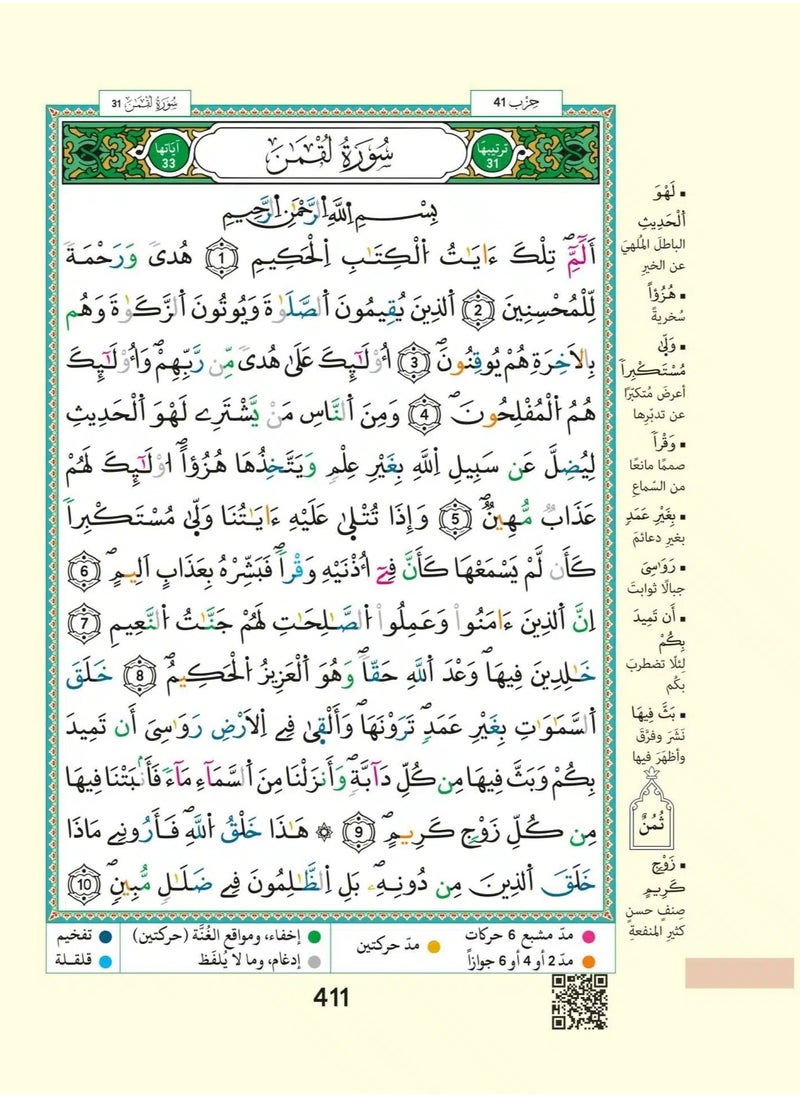 سُورَةُ لُقْمَٰنَ 31
حِزْب 41
ترتيبها 31
سُورَةُ لُقْمَٰنَ
آيَاتها 33
بِسْمِ اِ۬للَّهِ اِ۬لرَّحْمَٰنِ اِ۬لرَّحِيمِ
أَلَٓمِّٓۖ تِلْكَ ءَايَٰتُ اُ۬لْكِتَٰبِ اِ۬لْحَكِيمِ 1 هُدىٗ وَرَحْمَةٗ
لِّلْمُحْسِنِينَ 2 اَ۬لذِينَ يُقِيمُونَ اَ۬لصَّلَوٰةَ وَيُوتُونَ اَ۬لزَّكَوٰةَ وَهُم
بِالَاخِرَةِ هُمْ يُوقِنُونَۖ 3 أُوْلَٰٓئِكَ عَلَىٰ هُدىٗ مِّن رَّبِّهِمْۖ وَأُوْلَٰٓئِكَ
هُمُ اُ۬لْمُفْلِحُونَۖ 4 وَمِنَ اَ۬لنَّاسِ مَنْ يَّشْتَرِے لَهْوَ اَ۬لْحَدِيثِ
لِيُضِلَّ عَن سَبِيلِ اِ۬للَّهِ بِغَيْرِ عِلْمٖ وَيَتَّخِذُهَا هُزُؤاًۖ ا۟وْلَٰٓئِكَ لَهُمْ
عَذَابٞ مُّهِينٞۖ 5 وَإِذَا تُتْلَىٰ عَلَيْهِ ءَايَٰتُنَا وَلّ۪ىٰ مُسْتَكْبِراٗ
كَأَن لَّمْ يَسْمَعْهَا كَأَنَّ فِےٓ أُذْنَيْهِ وَقْراٗۖ فَبَشِّرْهُ بِعَذَابٍ اَلِيمٍۖ 6
اِنَّ اَ۬لذِينَ ءَامَنُواْ وَعَمِلُواْ اُ۬لصَّٰلِحَٰتِ لَهُمْ جَنَّٰتُ اُ۬لنَّعِيمِ 7
خَٰلِدِينَ فِيهَاۖ وَعْدَ اَ۬للَّهِ حَقّاٗۖ وَهُوَ اَ۬لْعَزِيزُ اُ۬لْحَكِيمُۖ 8 خَلَقَ
اَ۬لسَّمَٰوَٰتِ بِغَيْرِ عَمَدٖ تَرَوْنَهَاۖ وَأَلْقَىٰ فِے اِ۬لَارْضِ رَوَٰسِىَ أَن تَمِيدَ
بِكُمْ وَبَثَّ فِيهَا مِن كُلِّ دَآبَّةٖۖ وَأَنزَلْنَا مِنَ اَ۬لسَّمَآءِ مَآءٗ فَأَنۢبَتْنَا فِيهَا
مِن كُلِّ زَوْجٖ كَرِيمٍۖ 9 ۞ هَٰذَا خَلْقُ اُ۬للَّهِۖ فَأَرُونِے مَاذَا
خَلَقَ اَ۬لذِينَ مِن دُونِهِۦۖ بَلِ اِ۬لظَّٰلِمُونَ فِے ضَلَٰلٖ مُّبِينٖۖ 10
▪ لَهْوَ
اَ۬لْحَدِيثِ
الباطلَ المُلهيَ
عن الخيرِ
▪ هُزُؤاً
سُخريةً
▪ وَلّ۪ىٰ
مُسْتَكْبِراٗ
أعرضَ مُتكبّرًا
عن تدبّرِها
▪ وَقْراٗ
صممًا مانعًا
من السّماعِ
▪ بِغَيْرِ عَمَدٖ
بغيرِ دعائمَ
▪ رَوَٰسِىَ
جبالًا ثوابتَ
▪ أَن تَمِيدَ
بِكُمْ
لِئلّا تضطربَ
بكُم
▪ بَثَّ فِيهَا
نَشَرَ وفرَّقَ
وأظهَرَ فيها
ثُمُنٌ
▪ زَوْجٖ
كَرِيمٍ
صِنفٍ حسنٍ
كثيرِ المنفعةِ
مدّ مشبع 6 حركات
مدّ 2 أو 4 أو 6 جوازاً
مدّ حركتين
إخفاء، ومواقع الغُنَّة (حركتين)
إدغام، وما لا يُلفَظ
تفخيم
قلقلة
411